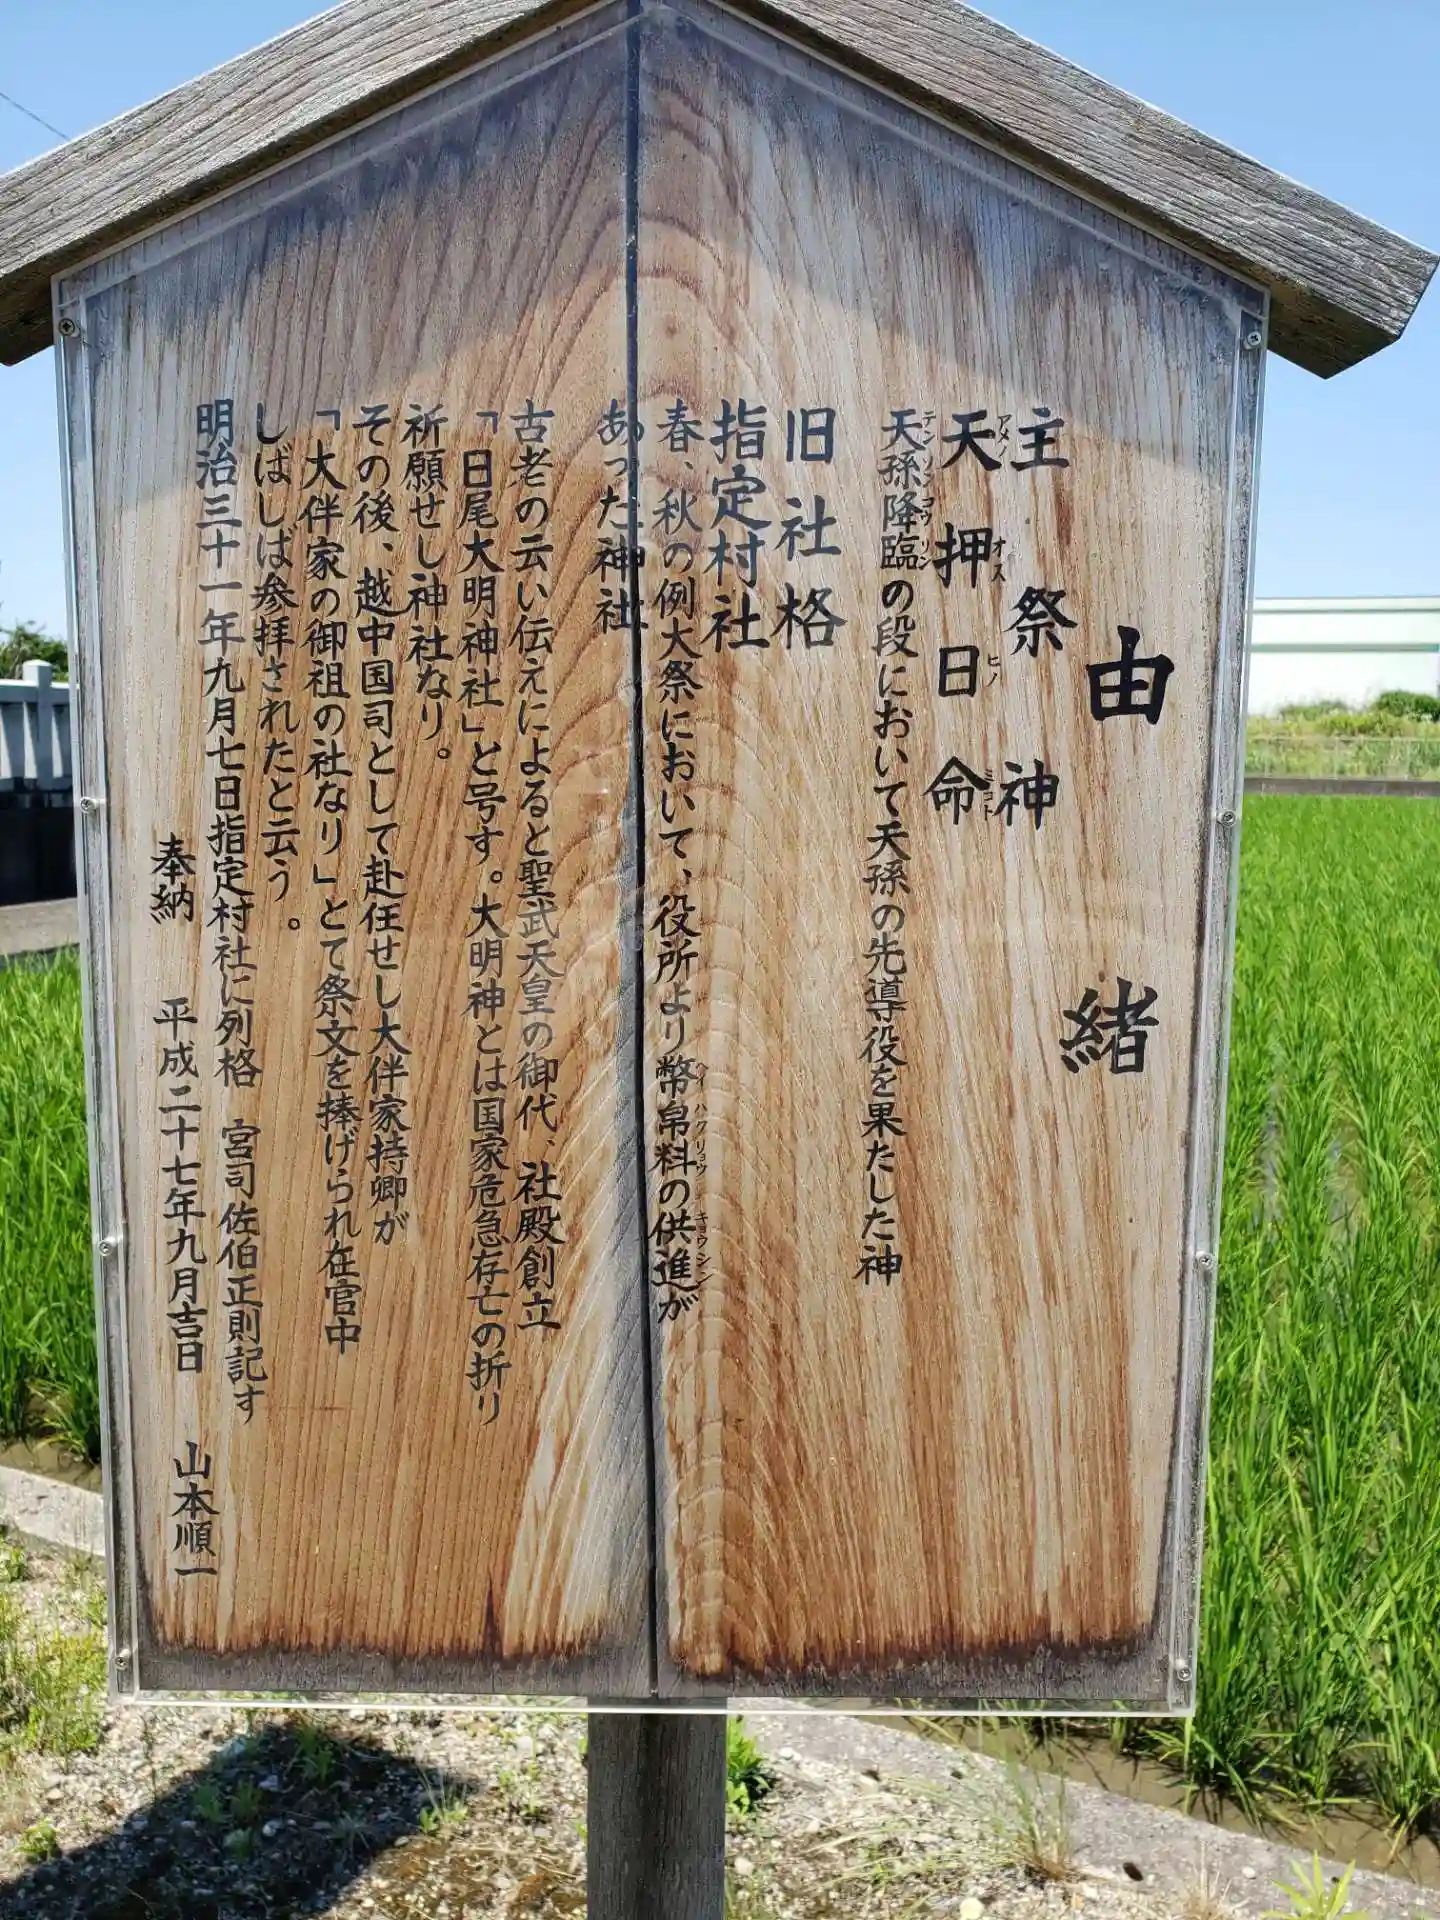 由緒
主祭神
天押日命
アメノ オス ヒノ ミコト
天孫降臨の段において天孫の先導役を果たした神
テンソンコウリン
旧社格
指定村社
春、秋の例大祭において、役所より幣帛料の供進が
ヘイハクリョウ キョウシン
あった神社
古老の云い伝えによると聖武天皇の御代、社殿創立
「日尾大明神社」と号す。大明神とは国家危急存亡の折り
祈願せし神社なり。
その後、越中国司として赴任せし大伴家持卿が
「大伴家の御祖の社なり」とて祭文を捧げられ在官中
しばしば参拝されたと云う。
明治三十一年九月七日指定村社に列格 宮司佐伯正則記す
奉納 平成二十七年九月吉日 山本順一